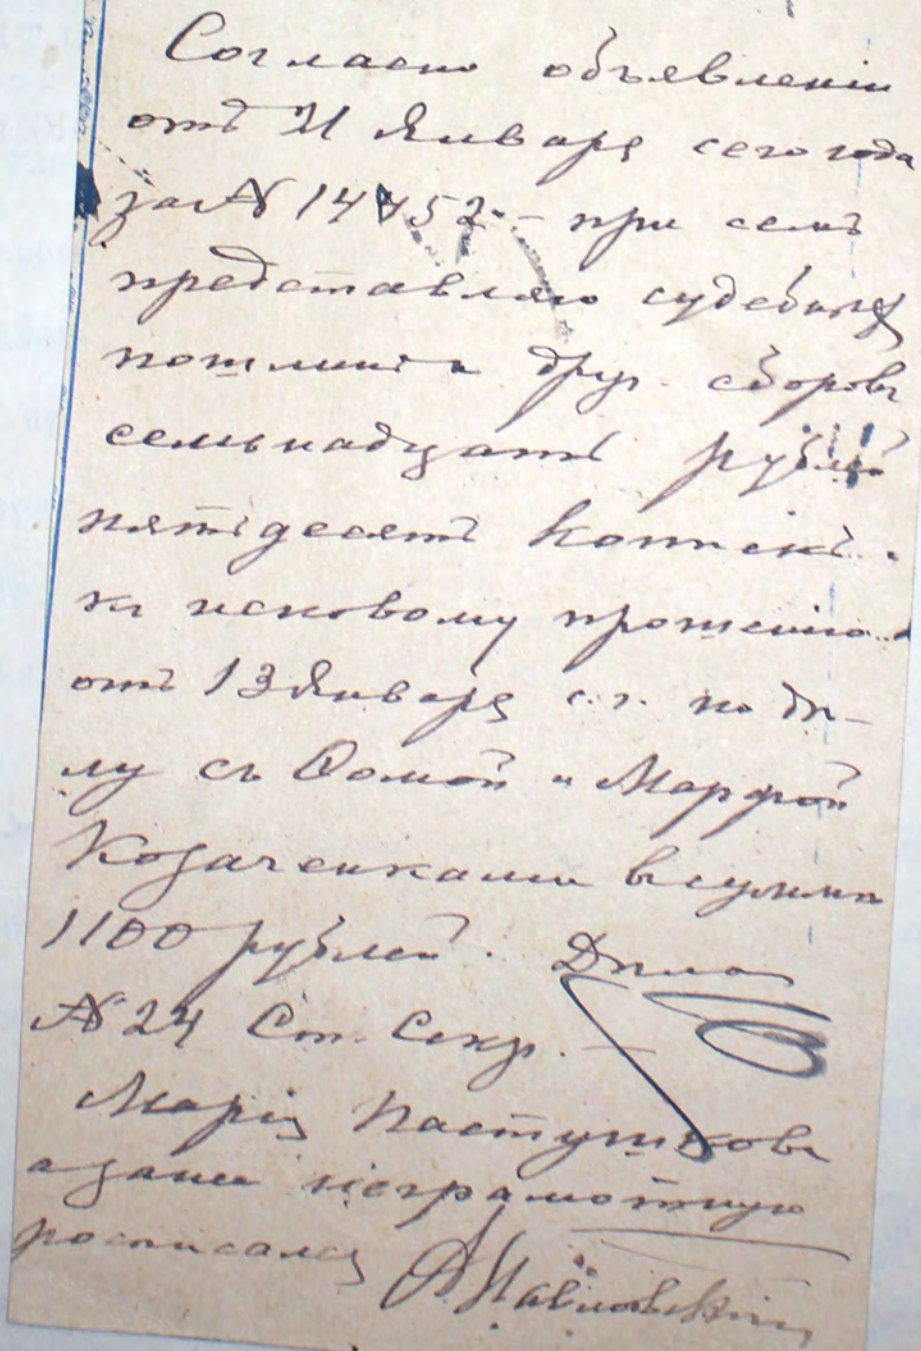 Согласно объявленію
отъ 21 Января сего года
за № 14452 – при семъ
представляю судебныя
пошлины и друг. сборовъ
семьнадцать рублей
пятьдесятъ копѣекъ
къ исковому прошенію
отъ 13 Января с. г. по дѣ-
лу съ Ѳомой и Марфой
Козаченками въ суммѣ
1100 рублей. Дѣло
№ 24 Ст. Секр. –
Марія Пастушкова
а за нее неграмотную
росписался